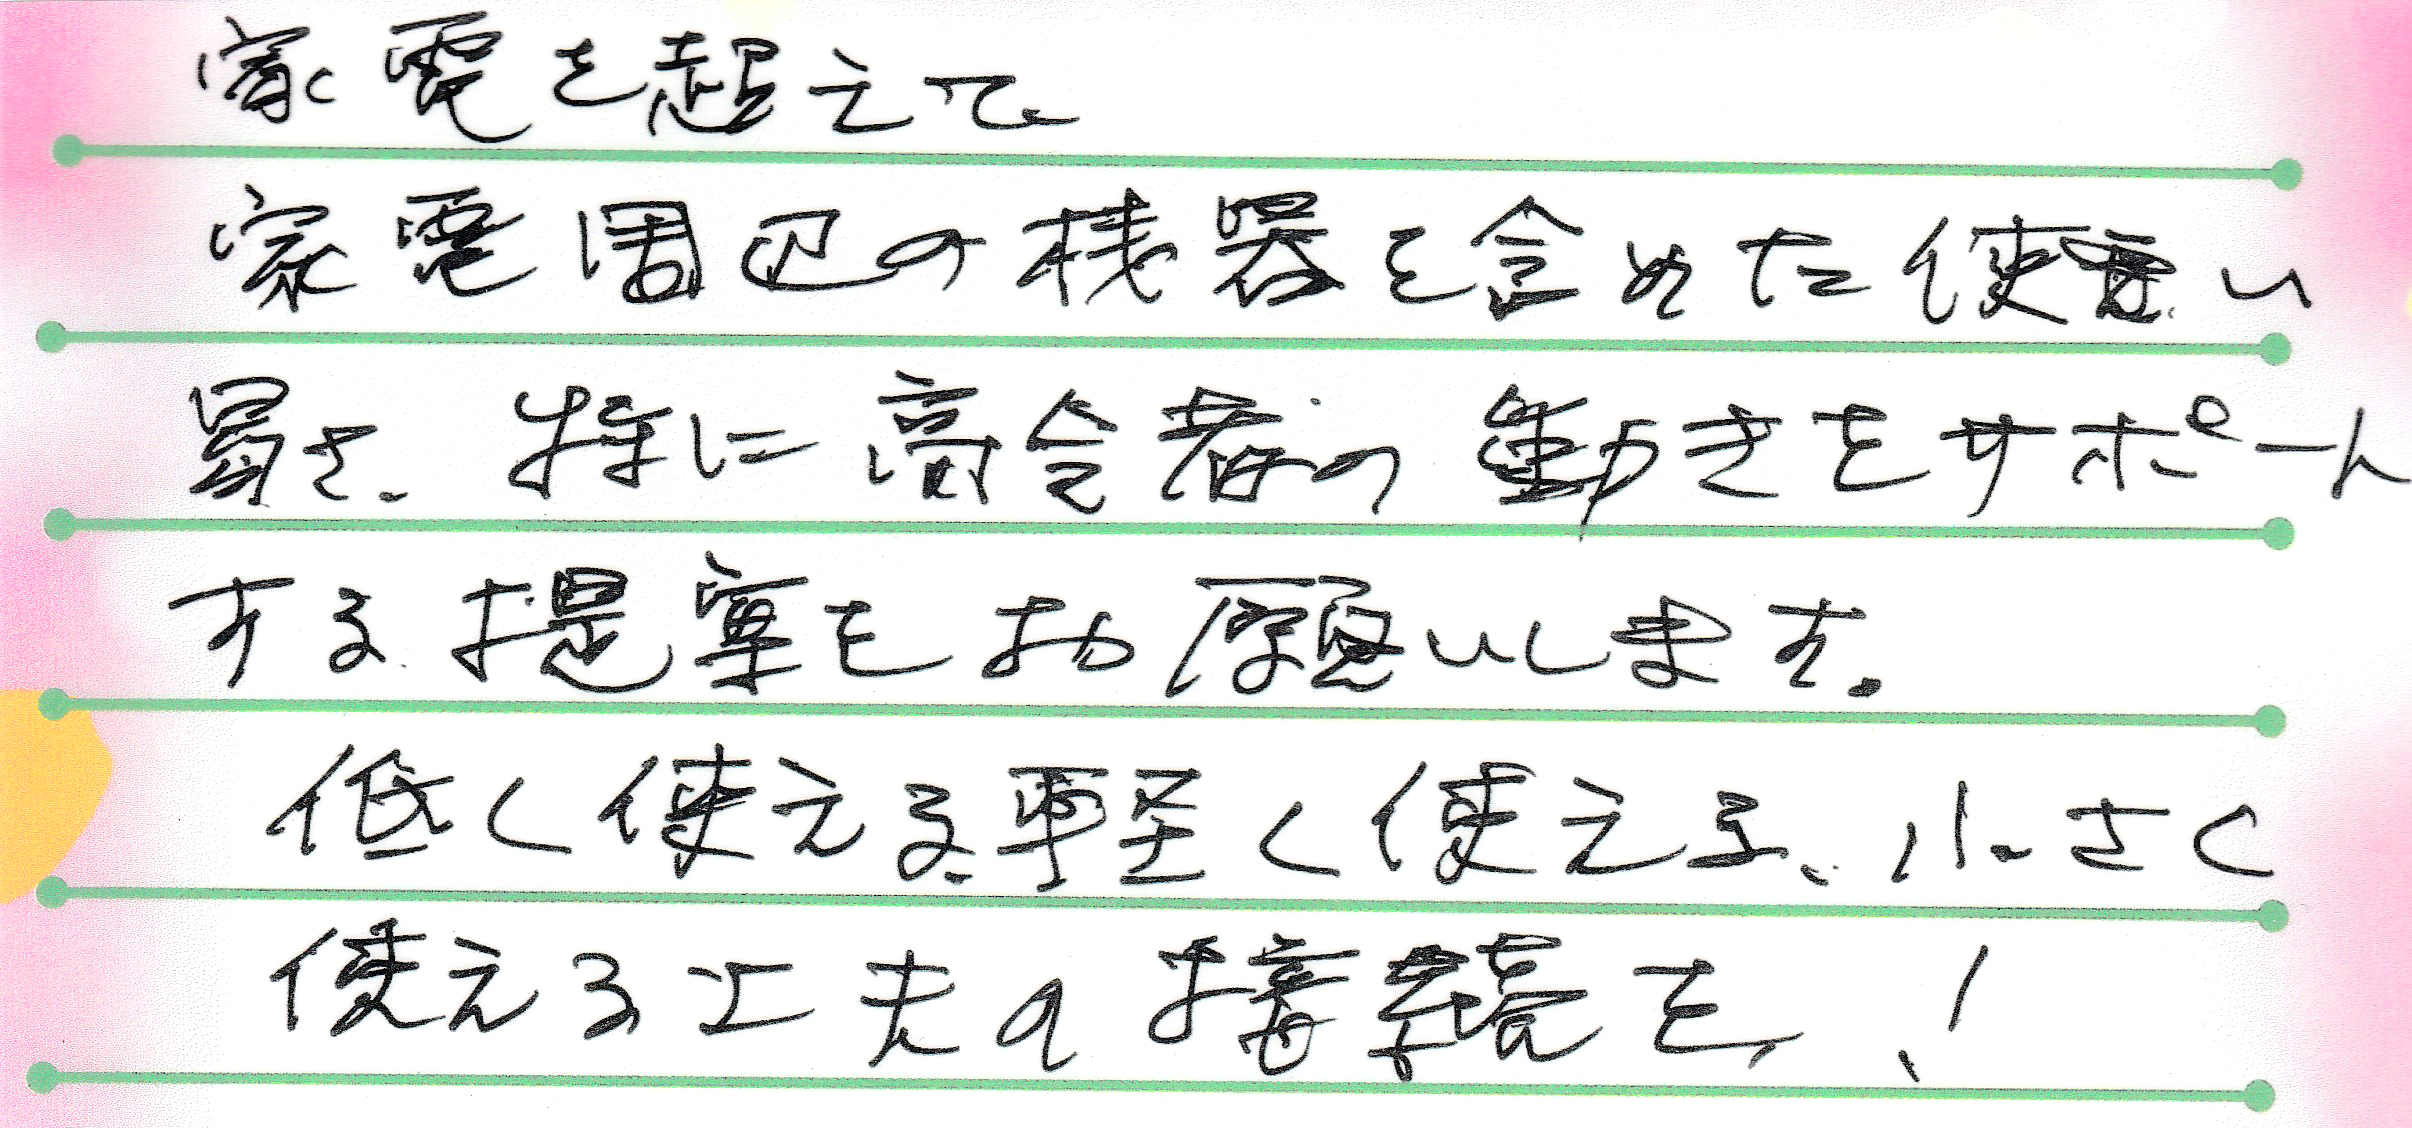 家電を超えて
家電周辺の機器を含めた使い
易さ、特に高令者の動きをサポート
する提案をお願いします。
低く使える、軽く使える、小さく
使える工夫の接続を、!